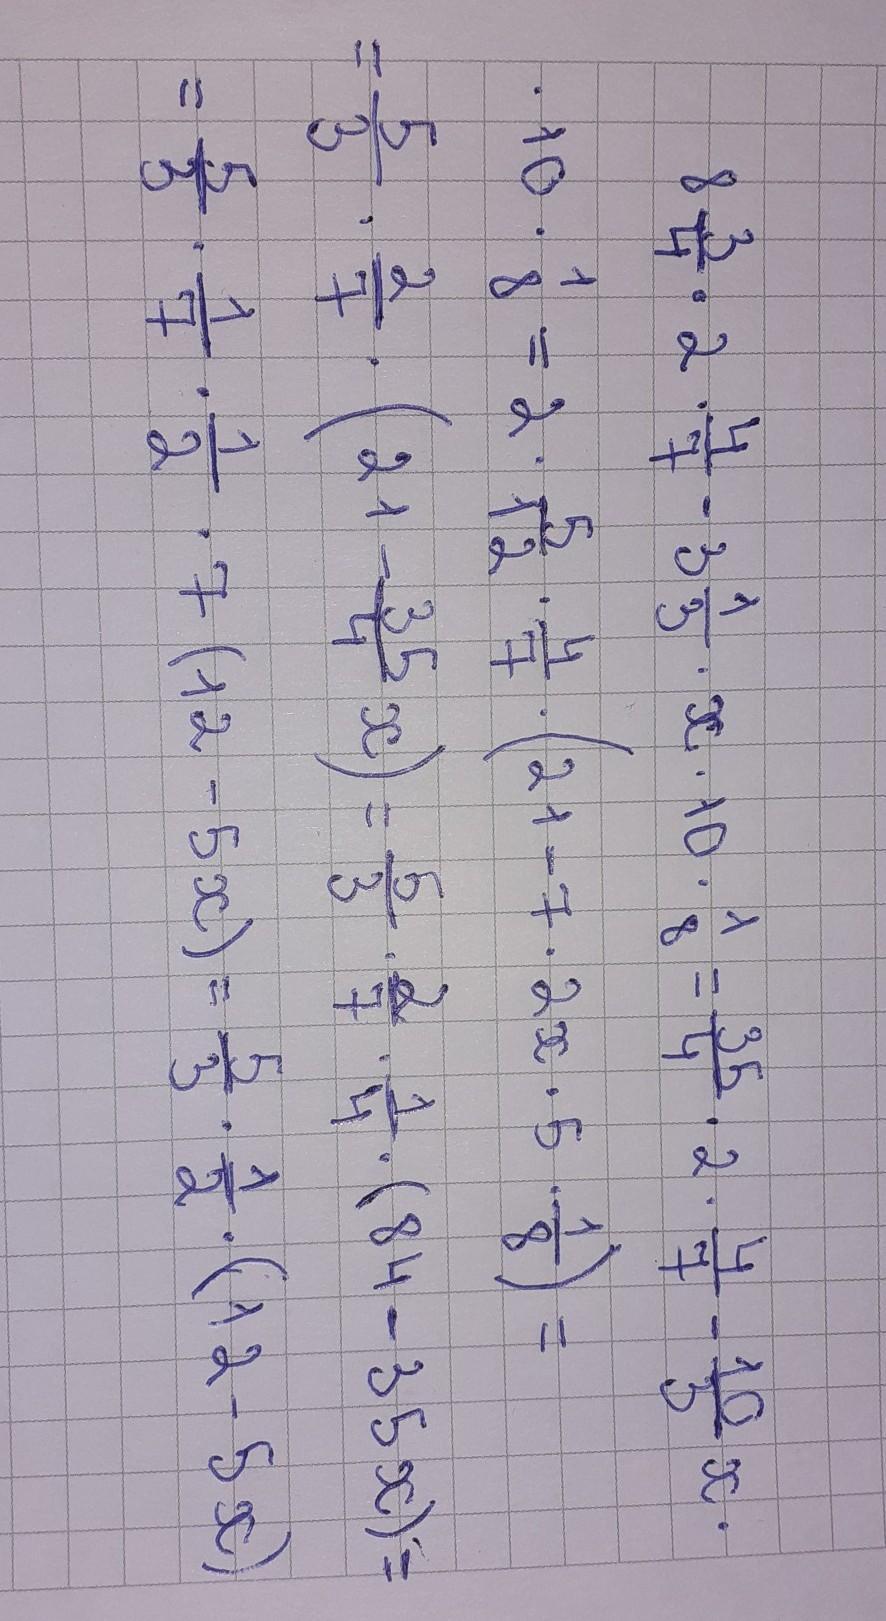 8 3/4 · 2 · 4/7 - 3 1/3 · x · 10 · 1/8 = 35/4 · 2 · 4/7 - 10/3 x ·
· 10 · 1/8 = 2 · 5/12 · 4/7 · (21 - 7 · 2x · 5 · 1/8) =
= 5/3 · 2/7 · (21 - 35/4 x) = 5/3 · 2/7 · 1/4 · (84 - 35x) =
= 5/3 · 1/7 · 1/2 · 7 (12 - 5x) = 5/3 · 1/2 · (12 - 5x)